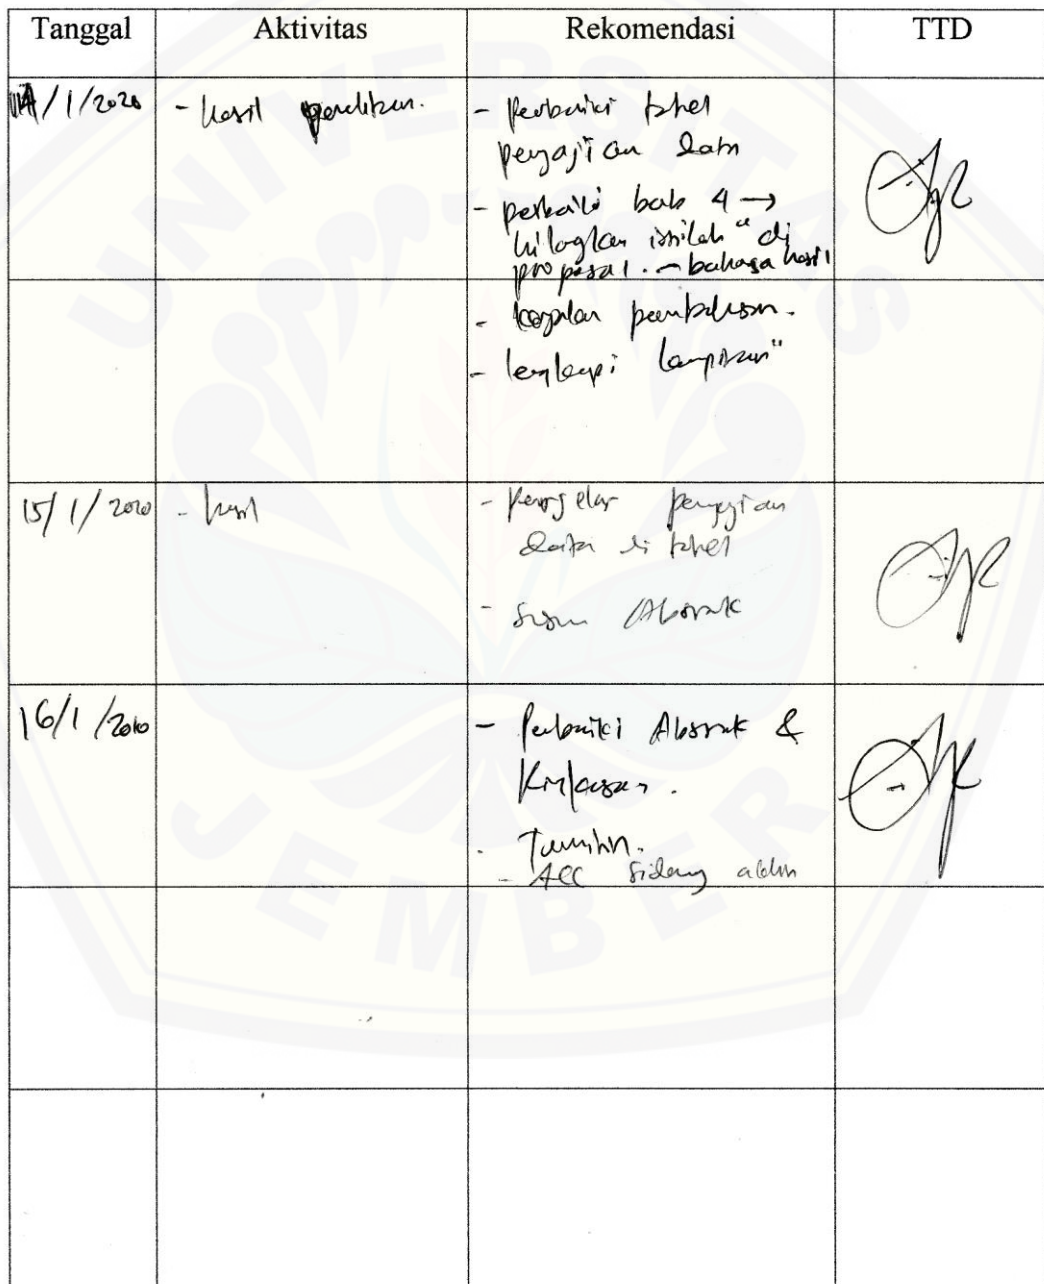 Tanggal Aktivitas Rekomendasi TTD
14/1/2020 - hasil penelitian. - perbaiki tabel
penyajian data
- perbaiki bab 4 →
hilangkan istilah" di
proposal. - bahasa hasil
- pembahasan.
- lengkapi lampiran"
15/1/2020 - hasil - penyajian
data di tabel
- susun Abstrak
16/1/2020 - Perbaiki Abstrak &
Ringkasan.
- Acc Sidang
UNIVERSITAS
JEMBER